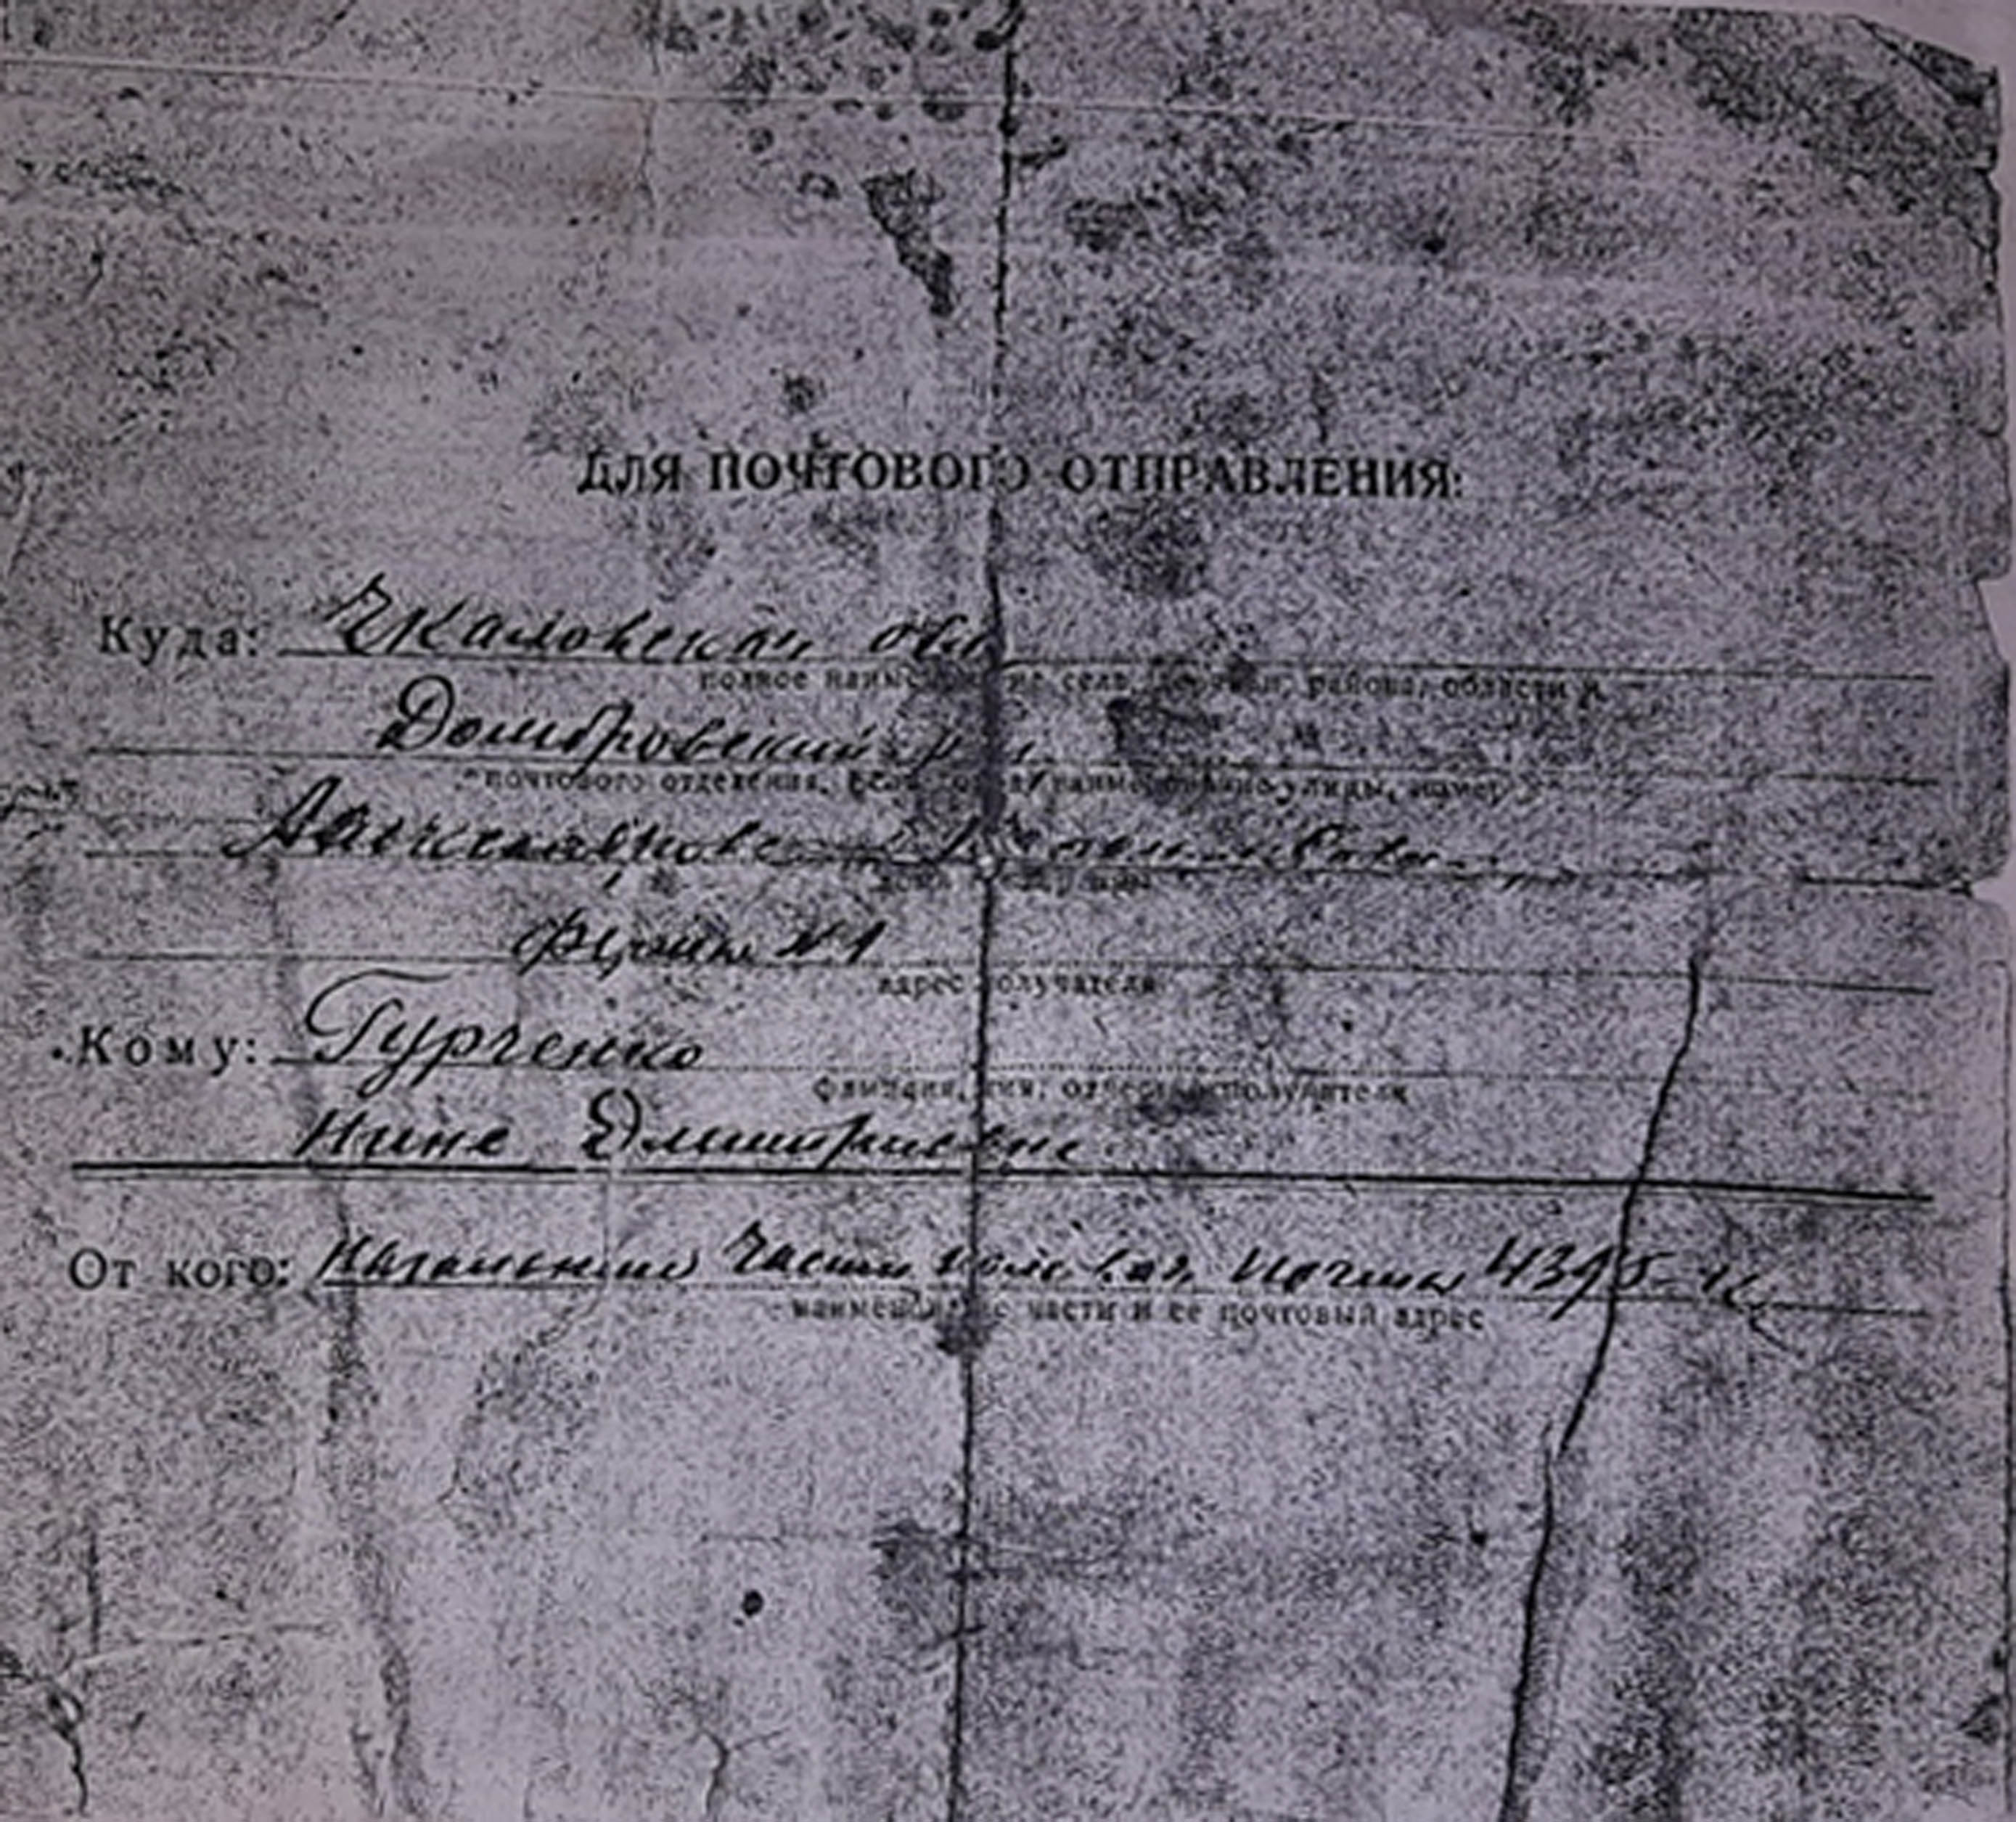 ДЛЯ ПОЧТОВОГО ОТПРАВЛЕНИЯ:
Куда: Чкаловская обл
полное наименование села, района, области и
Домбровский р
почтового отделения, наименование улицы, номер
адрес получателя
ферма №1
Кому: Гурченко
фамилия, имя, отчество получателя
Нине Дмитриевне
От кого: части полевая почта
наименование части и ее почтовый адрес